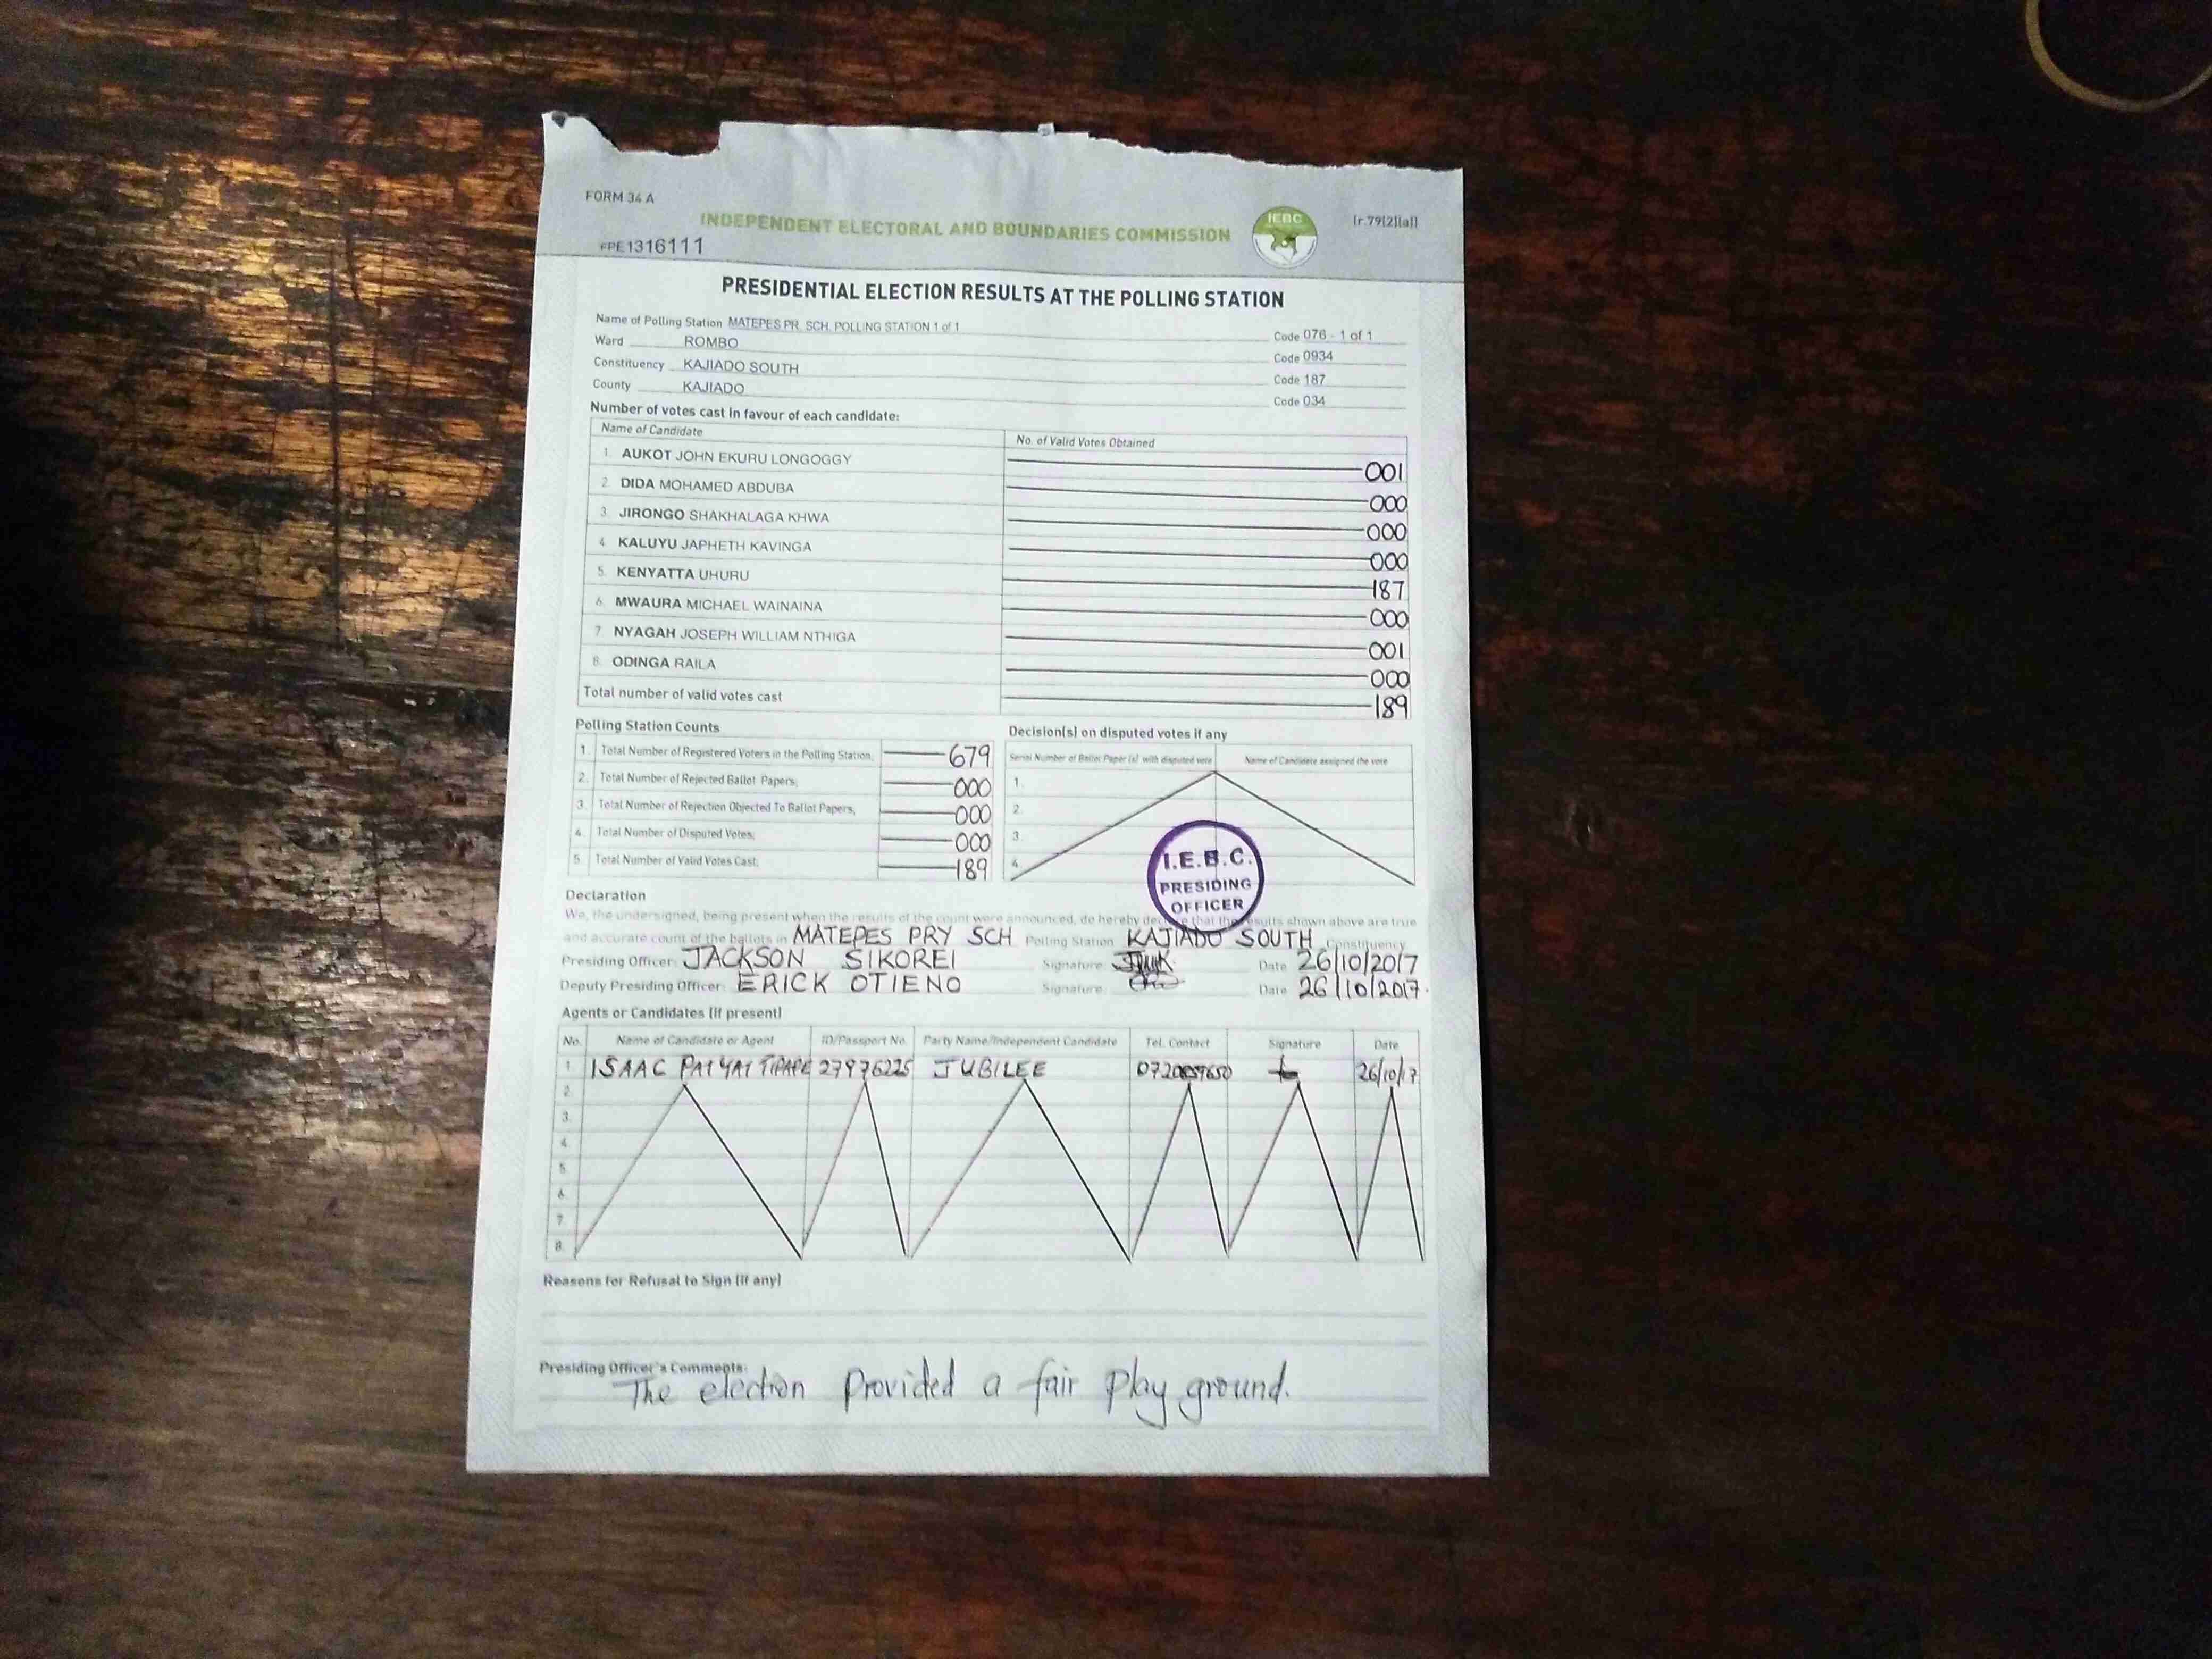 FORM 34 A
INDEPENDENT ELECTORAL AND BOUNDARIES COMMISSION
IEBC
[r.79(2)(a)]
FPE1316111
PRESIDENTIAL ELECTION RESULTS AT THE POLLING STATION
Name of Polling Station MATEPES PR. SCH. POLLING STATION 1 of 1 Code 076 - 1 of 1
Ward ROMBO Code 0934
Constituency KAJIADO SOUTH Code 187
County KAJIADO Code 034
Number of votes cast in favour of each candidate:
Name of Candidate No. of Valid Votes Obtained
1. AUKOT JOHN EKURU LONGOGGY 001
2. DIDA MOHAMED ABDUBA 000
3. JIRONGO SHAKHALAGA KHWA 000
4. KALUYU JAPHETH KAVINGA 000
5. KENYATTA UHURU 187
6. MWAURA MICHAEL WAINAINA 000
7. NYAGAH JOSEPH WILLIAM NTHIGA 001
8. ODINGA RAILA 000
Total number of valid votes cast 189
Polling Station Counts
1. Total Number of Registered Voters in the Polling Station; 679
2. Total Number of Rejected Ballot Papers; 000
3. Total Number of Rejection Objected To Ballot Papers; 000
4. Total Number of Disputed Votes; 000
5. Total Number of Valid Votes Cast; 189
Decision(s) on disputed votes if any
Serial Number of Ballot Paper (s) with disputed vote Name of Candidate assigned the vote
1.
2.
3.
4.
I.E.B.C.
PRESIDING
OFFICER
Declaration
We, the undersigned, being present when the results of the count were announced, do hereby declare that the results shown above are true
and accurate count of the ballots in MATEPES PRY SCH Polling Station KAJIADO SOUTH Constituency
Presiding Officer: JACKSON SIKOREI Signature Date 26/10/2017
Deputy Presiding Officer: ERICK OTIENO Signature Date 26/10/2017.
Agents or Candidates (if present)
No. Name of Candidate or Agent ID/Passport No. Party Name/Independent Candidate Tel. Contact Signature Date
1 ISAAC 27976225 JUBILEE 26/10/17
2
3
4
5
6
7
8
Reasons for Refusal to Sign (if any)
Presiding Officer's Comments:
The election Provided a fair Play ground.